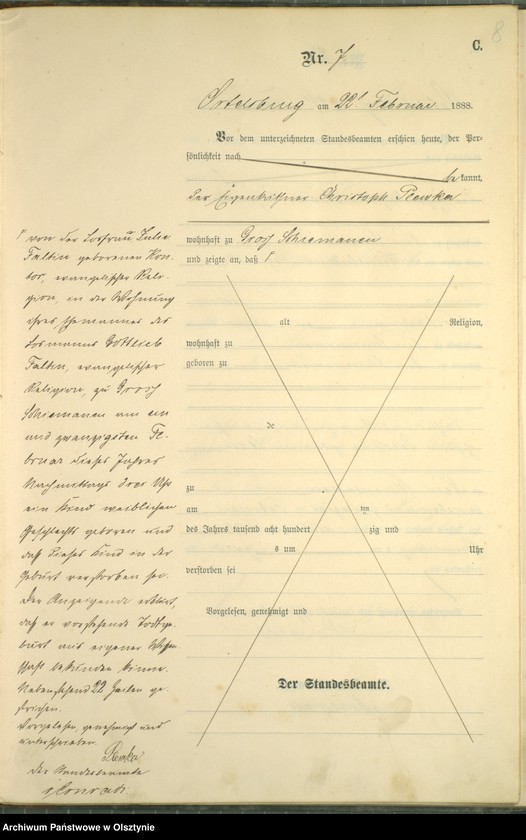 8
C.
Nr. 7
Ortelsburg am 22t Februar 1888.
Vor dem unterzeichneten Standesbeamten erschien heute, der Per-
sönlichkeit nach
be kannt,
der Eigenkäthner Christoph Plewka
wohnhaft zu Groß Schiemanen
und zeigte an, daß
von der Losfrau Julie
Faltin geborenen Kon-
bor, evangelischer Reli-
gion, in der Wohnung
ihres Ehemannes des
Losmanns Gottlieb
Faltin, evangelischer
Religion, zu Groß
Schiemanen am ein
und zwanzigsten Fe-
bruar dieses Jahres
Nachmittags drei Uhr
ein Kind weiblichen
Geschlechts geboren und
daß dieses Kind in der
Geburt verstorben sei.
Der Anzeigende erklärt,
daß er vorstehende Todtge-
burt aus eigener Wissen-
schaft bekunden könne.
Nebenstehend 22 Zeilen ge-
strichen.
Vorgelesen, genehmigt und
unterschrieben.
Plewka
Der Standesbeamte
alt Religion,
wohnhaft zu
geboren zu
de
zu
am ten
des Jahres tausend acht hundert zig und
s um Uhr
verstorben sei
Vorgelesen, genehmigt und
Der Standesbeamte.
Archiwum Państwowe w Olsztynie